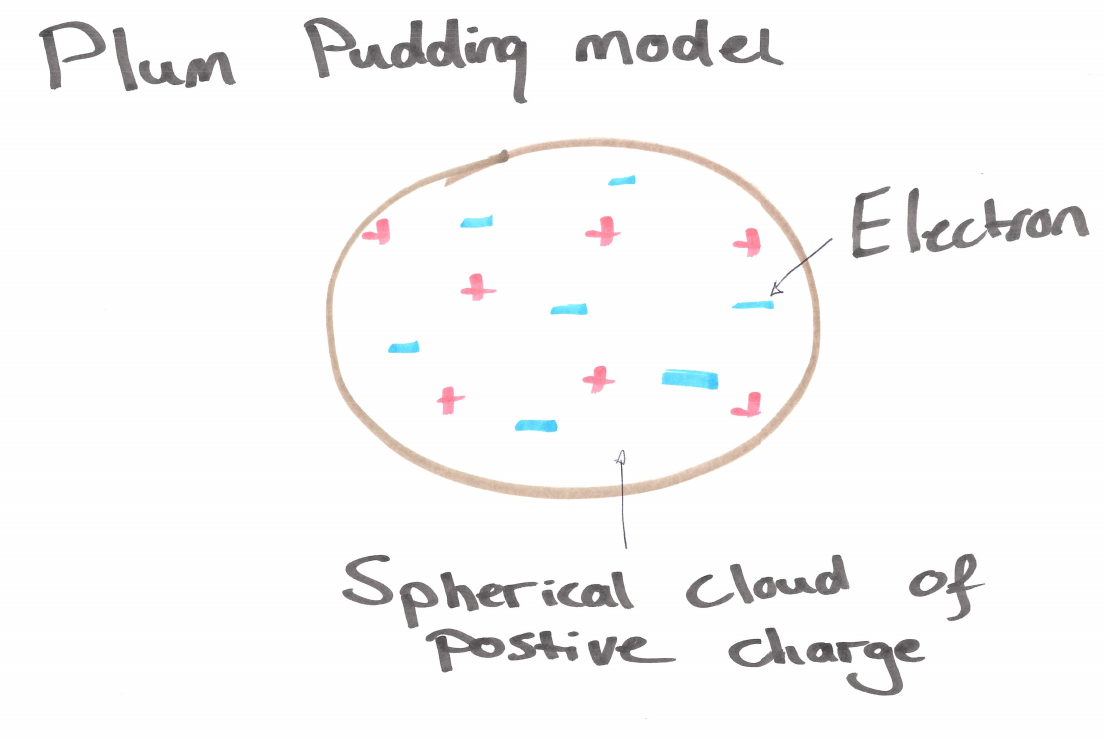 Plum Pudding model
Electron
Spherical cloud of
Postive charge